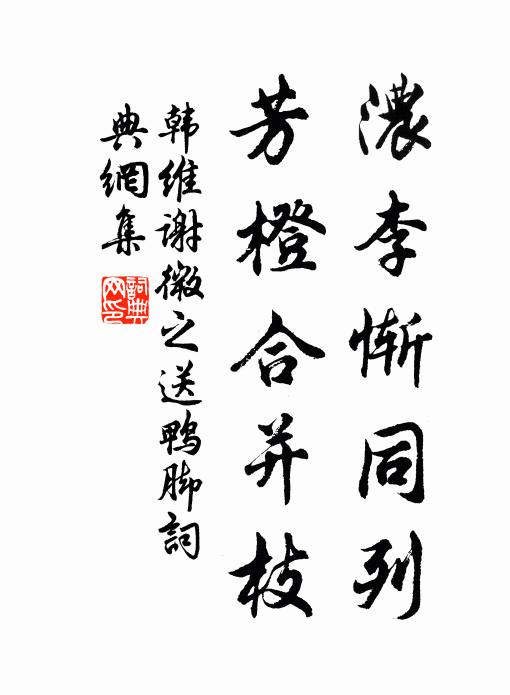 濃李慚同列
芳橙合并枝
韩维谢微之送鸭脚詞
典網集
詞典網印